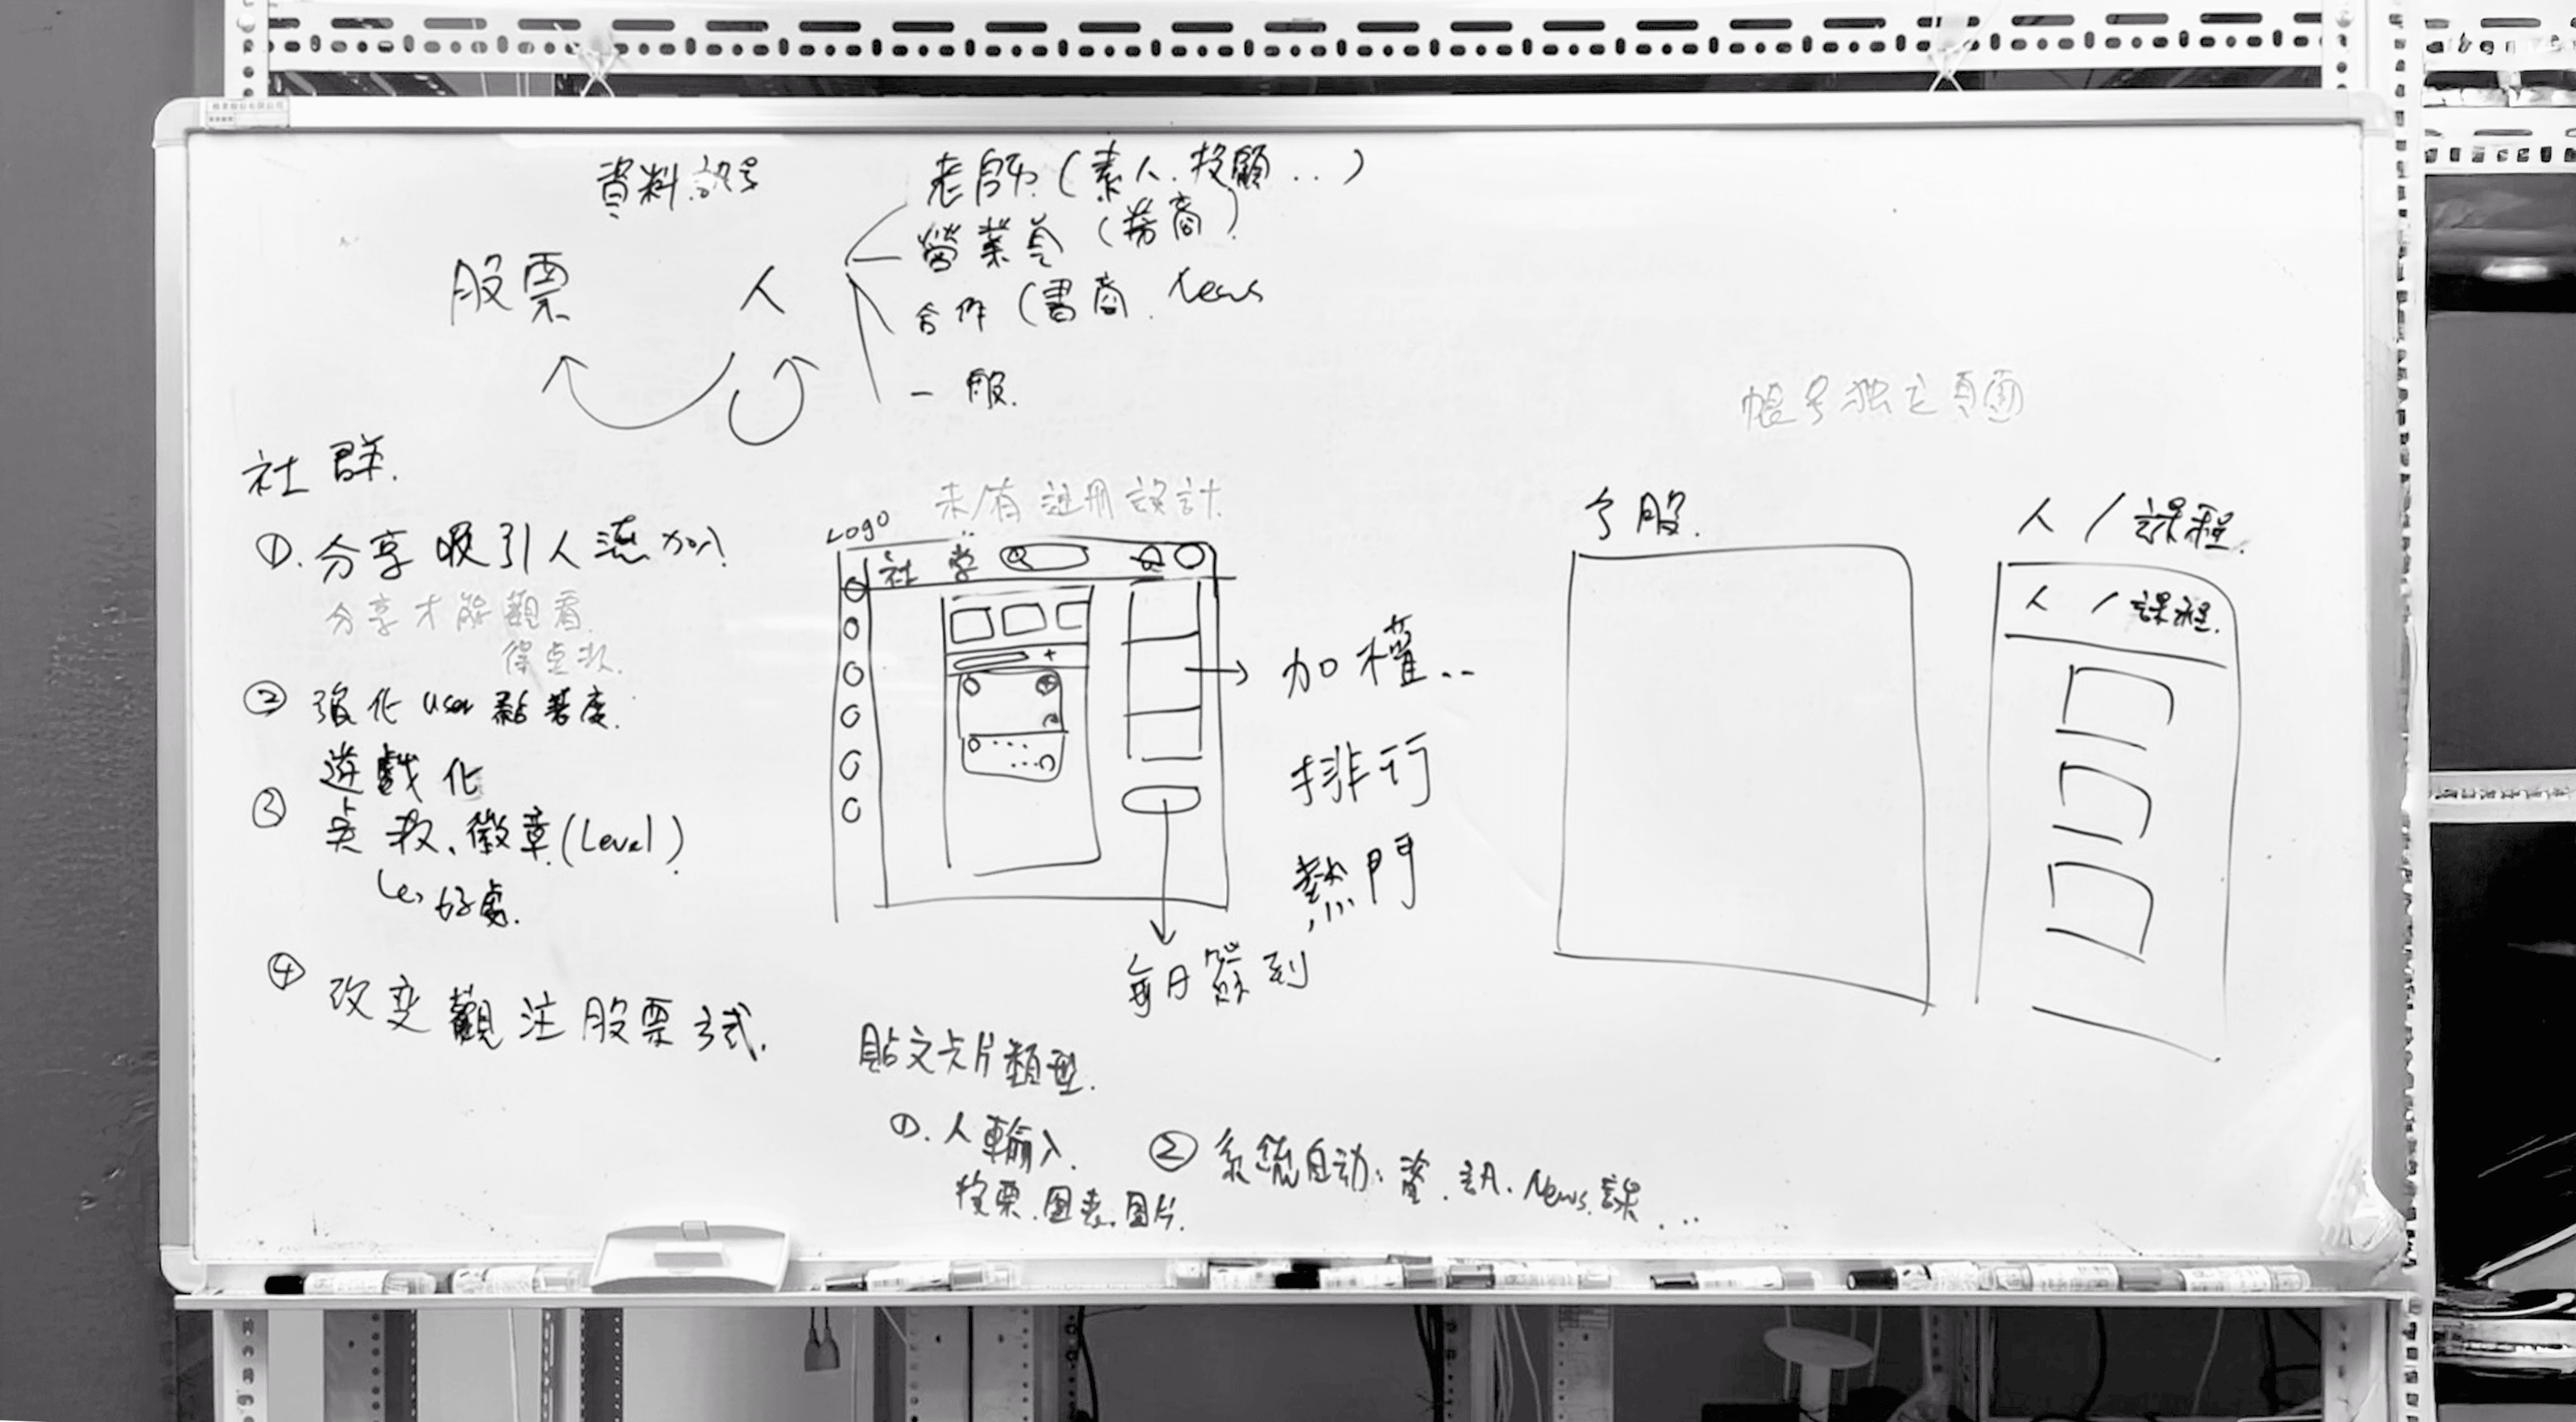 資料訊号
老師(素人.投顧..)
營業員(券商)
合作(書商.News
一般.
股票 人
社群.
①.分享吸引人流加入
分享才能觀看
得点数.
② 強化user黏著度.
遊戲化
③ 点数、徽章(Level)
好處.
④ 改变觀注股票方式.
未/有註册設計
Logo
社 学
加權..
排行
熱門
每日簽到
帳号独立頁面
个股.
人/課程.
人/課程.
貼文卡片類型.
①.人輸入.
投票.图表.图片.
② 系统自动:篩.訊.News.課...